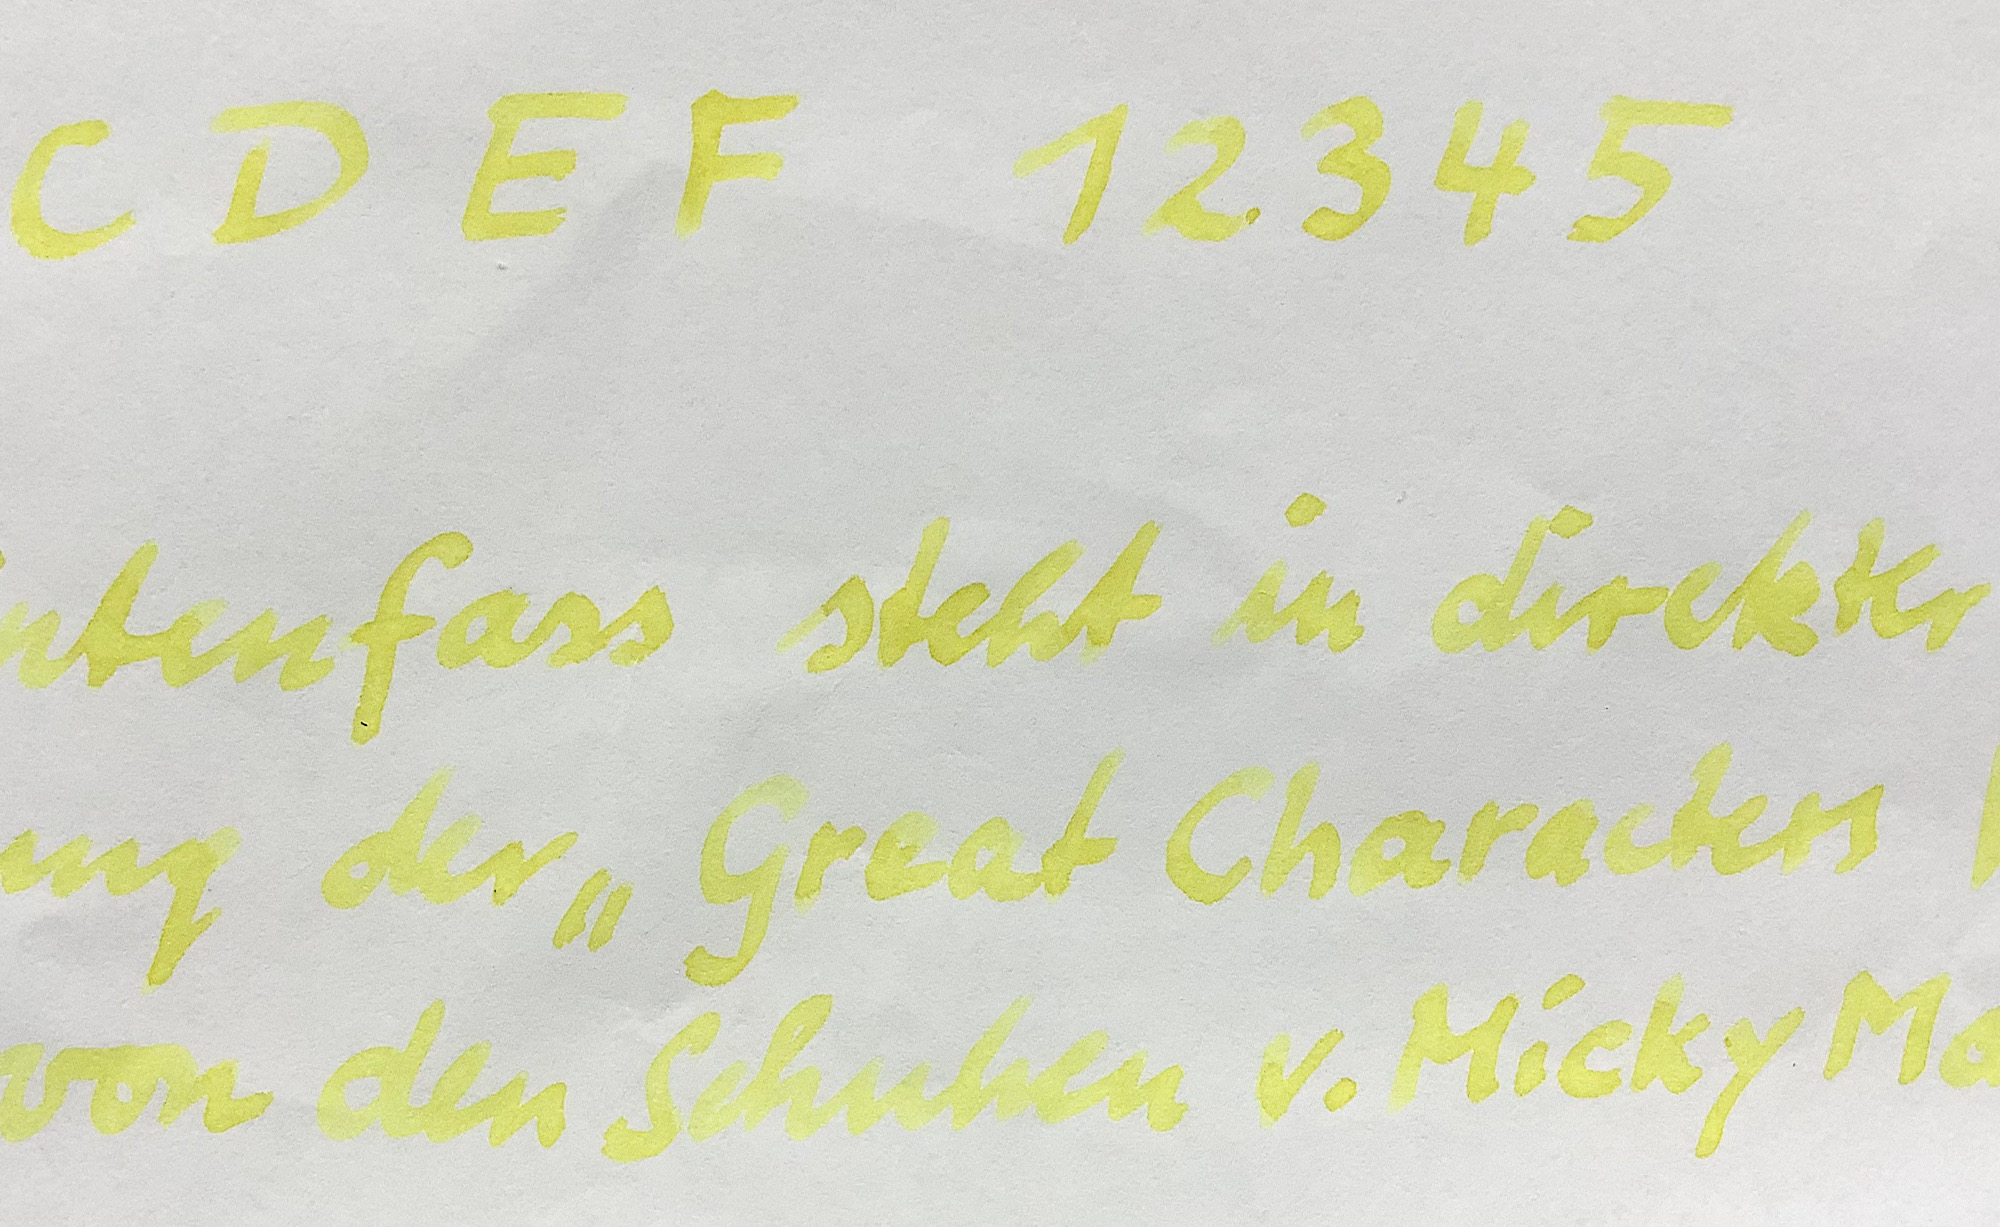 C D E F 1 2 3 4 5
intenfass steht in direkter
ung der „Great Characters
von den Schuhen v. Micky Ma